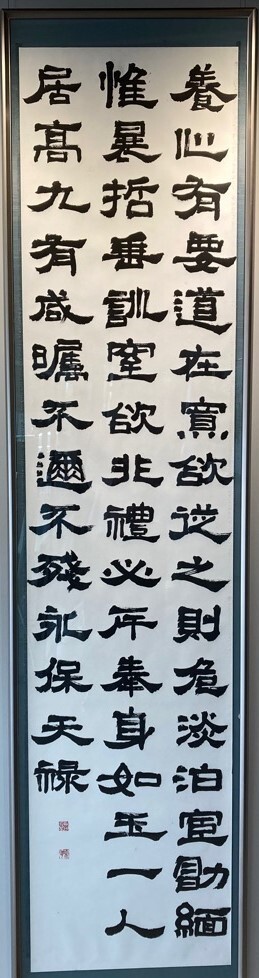 養心有要道在寡欲從之則危淡泊宜勖緬
惟曩哲垂訓窒欲非禮必斥奉身如玉一人
居高九有咸矚不邇不殘永保天祿